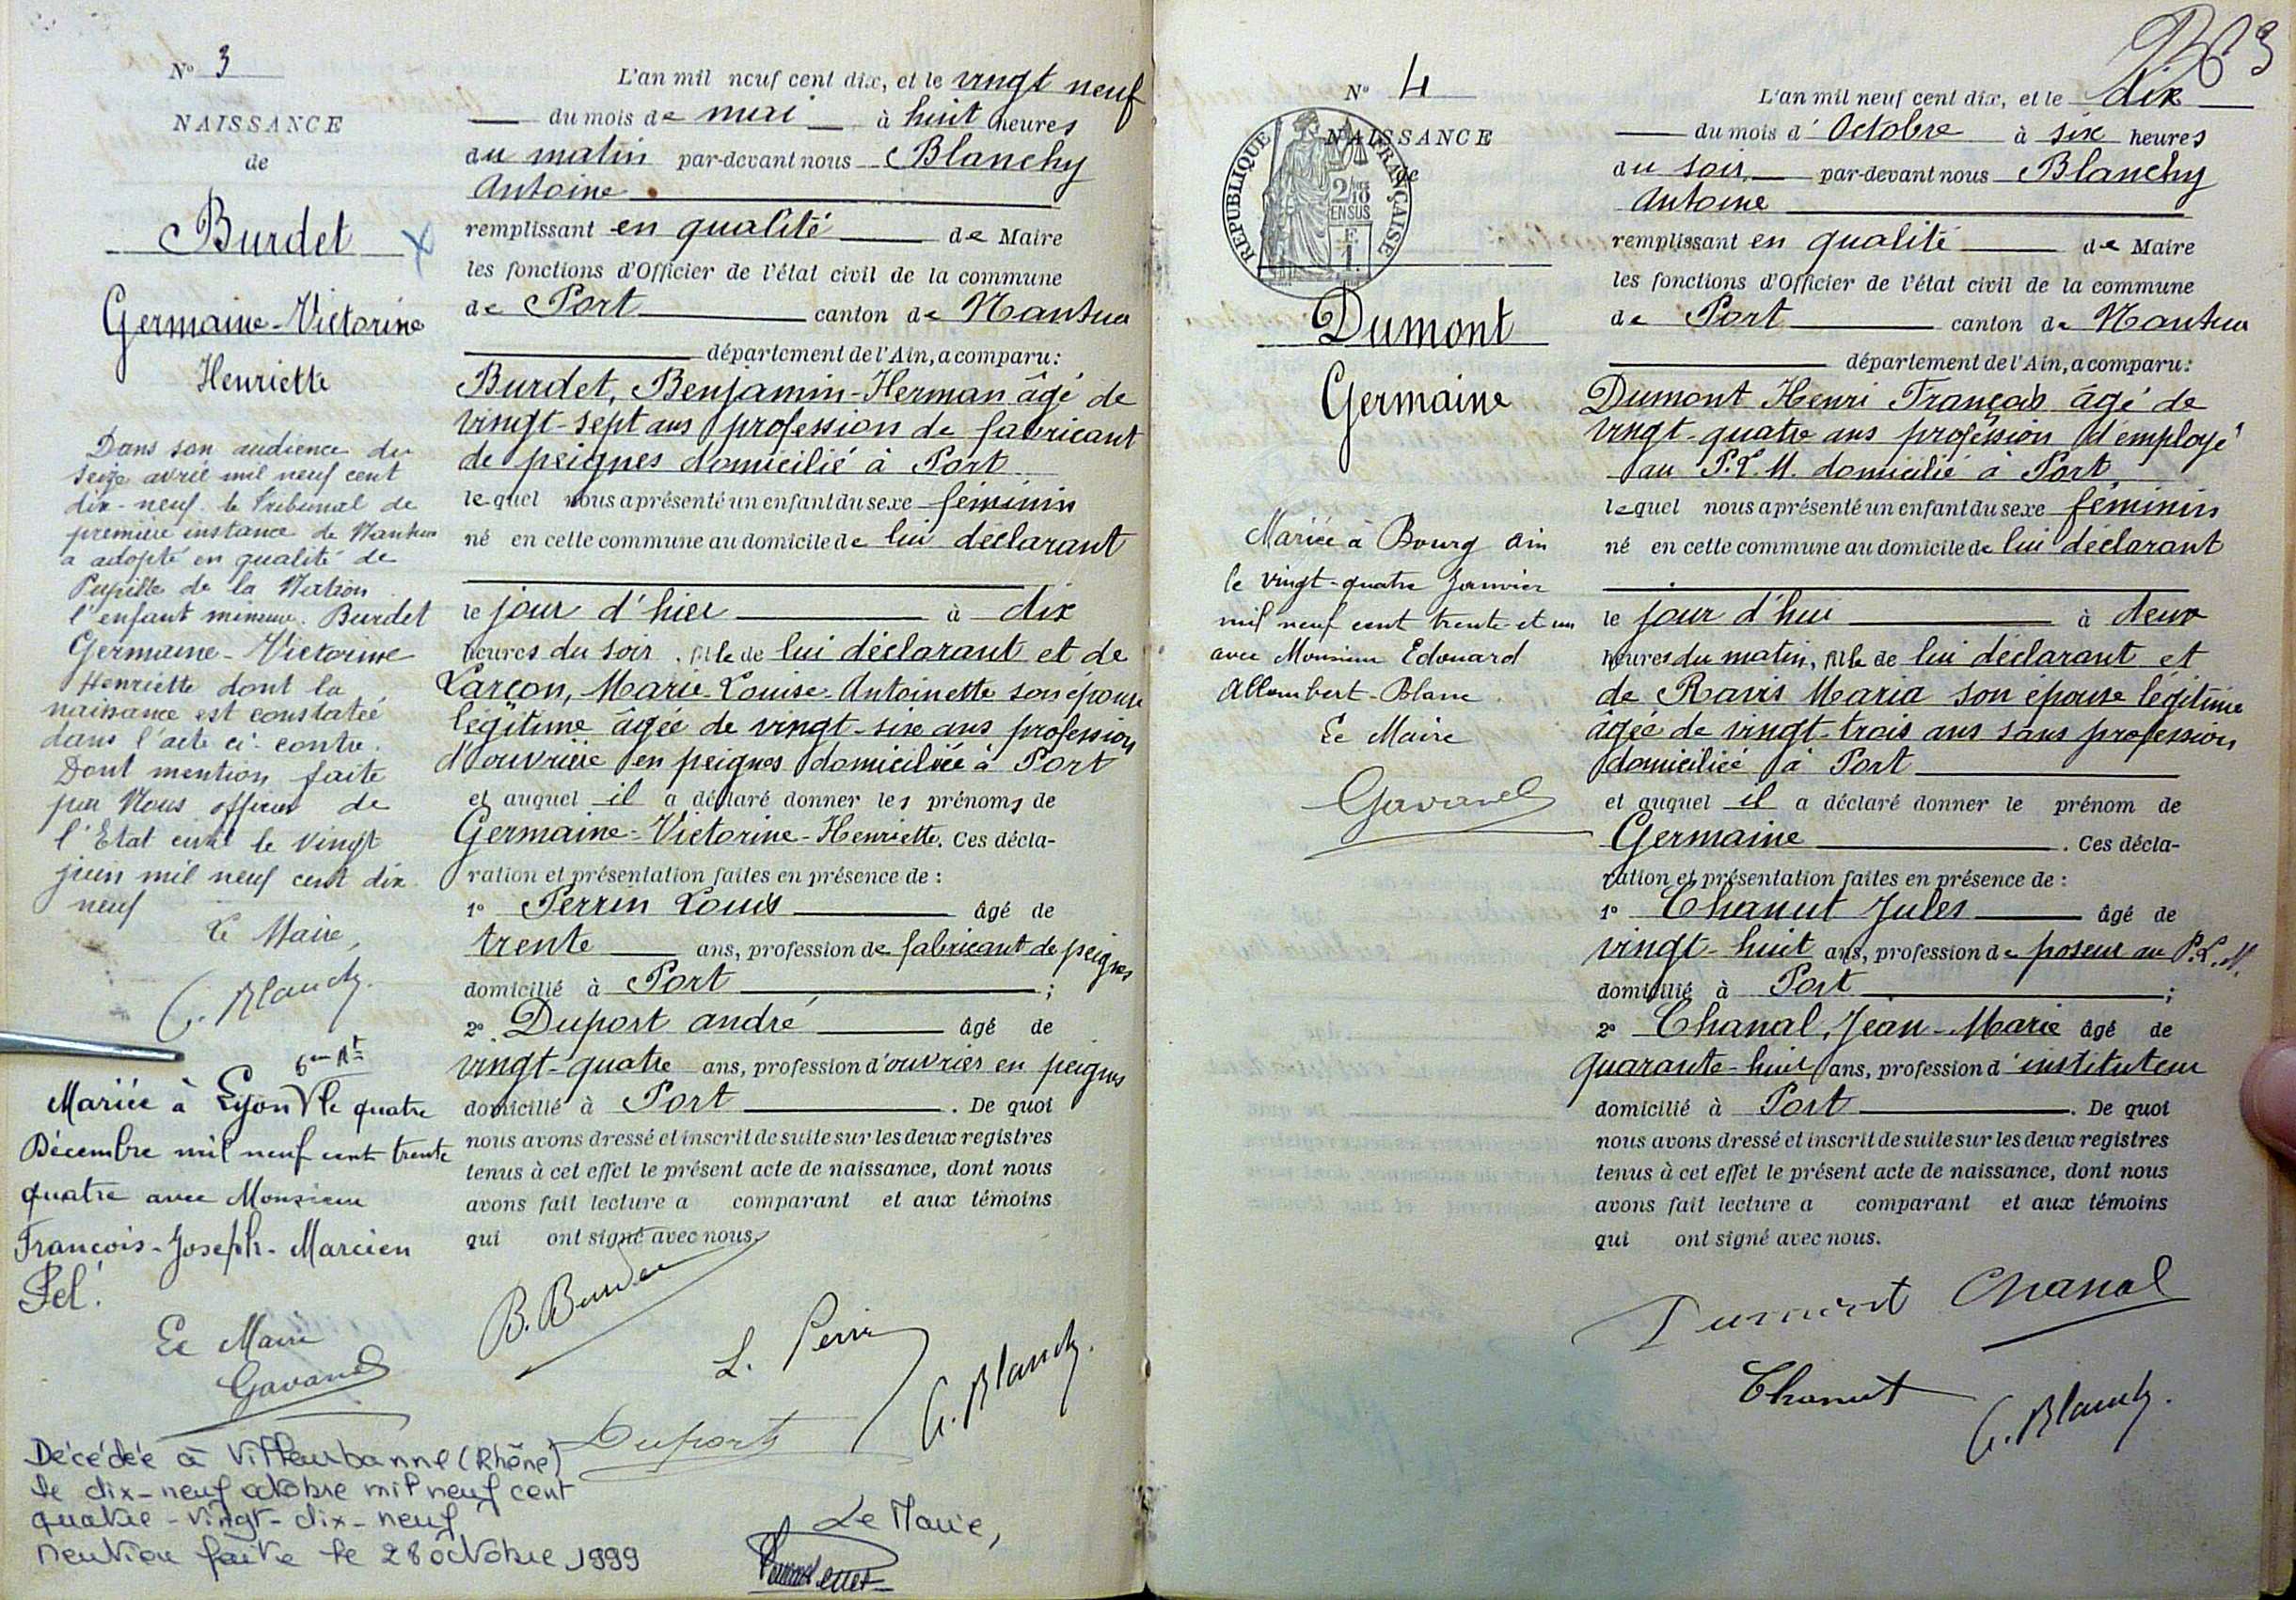 N° 3
NAISSANCE
de
Burdet
Germaine-Victorine
Henriette
Dans son audience du
seize avril mil neuf cent
dix-neuf le Tribunal de
première instance de Nantua
a adopté en qualité de
Pupille de la Nation
l'enfant mineure Burdet
Germaine-Victorine
Henriette dont la
naissance est constatée
dans l'acte ci-contre.
Dont mention faite
par Nous officier de
l'Etat civil le vingt
juin mil neuf cent dix
neuf
Le Maire,
A. Blanchy.
6me Art
Mariée à Lyon V le quatre
Décembre mil neuf cent trente
quatre avec Monsieur
François-Joseph-Marcien
Pel.
Le Maire
Gavand
Décédée à Villeurbanne (Rhône)
le dix-neuf octobre mil neuf cent
quatre-vingt-dix-neuf
mention faite le 28 octobre 1999
Le Maire,
L'an mil neuf cent dix, et le vingt neuf
du mois de mai à huit heures
du matin par-devant nous Blanchy
Antoine
remplissant en qualité de Maire
les fonctions d'Officier de l'état civil de la commune
de Port canton de Nantua
département de l'Ain, a comparu:
Burdet, Benjamin-Herman âgé de
vingt-sept ans profession de fabricant
de peignes domicilié à Port
lequel nous a présenté un enfant du sexe féminin
né en cette commune au domicile de lui déclarant
le jour d'hier à dix
heures du soir, fille de lui déclarant et de
Larçon, Marie-Louise-Antoinette son épouse
légitime âgée de vingt-six ans profession
d'ouvrière en peignes domiciliée à Port
et auquel il a déclaré donner les prénoms de
Germaine-Victorine-Henriette. Ces décla-
ration et présentation faites en présence de :
1° Perrin Louis âgé de
trente ans, profession de fabricant de peignes
domicilié à Port ;
2° Duport andré âgé de
vingt-quatre ans, profession d'ouvrier en peignes
domicilié à Port . De quoi
nous avons dressé et inscrit de suite sur les deux registres
tenus à cet effet le présent acte de naissance, dont nous
avons fait lecture a comparant et aux témoins
qui ont signé avec nous.
B. Burdet
L. Perrin
A. Blanchy.
Duport
N° 4
NAISSANCE
de
RÉPUBLIQUE FRANÇAISE
2/10
EN SUS
F.
1.
Dumont
Germaine
Mariée à Bourg Ain
le vingt-quatre Janvier
mil neuf cent trente et un
avec Monsieur Edouard
Allombert-Blanc.
Le Maire
Gavand
3
L'an mil neuf cent dix, et le dix
du mois d'Octobre à six heures
du soir, par-devant nous Blanchy
Antoine
remplissant en qualité de Maire
les fonctions d'Officier de l'état civil de la commune
de Port canton de Nantua
département de l'Ain, a comparu:
Dumont Henri François âgé de
vingt-quatre ans profession d'employé
au P.L.M. domicilié à Port
lequel nous a présenté un enfant du sexe féminin
né en cette commune au domicile de lui déclarant
le jour d'hui à deux
heures du matin, fille de lui déclarant et
de Ravis Maria son épouse légitime
âgée de vingt-trois ans sans profession
domiciliée à Port
et auquel il a déclaré donner le prénom de
Germaine . Ces décla-
ration et présentation faites en présence de :
1° Chanut Jules âgé de
vingt-huit ans, profession de poseur au P.L.M.
domicilié à Port ;
2° Chanal, Jean-Marie âgé de
quarante-huit ans, profession d'instituteur
domicilié à Port . De quoi
nous avons dressé et inscrit de suite sur les deux registres
tenus à cet effet le présent acte de naissance, dont nous
avons fait lecture a comparant et aux témoins
qui ont signé avec nous.
Dumont Chanal
Chanut
A. Blanchy.